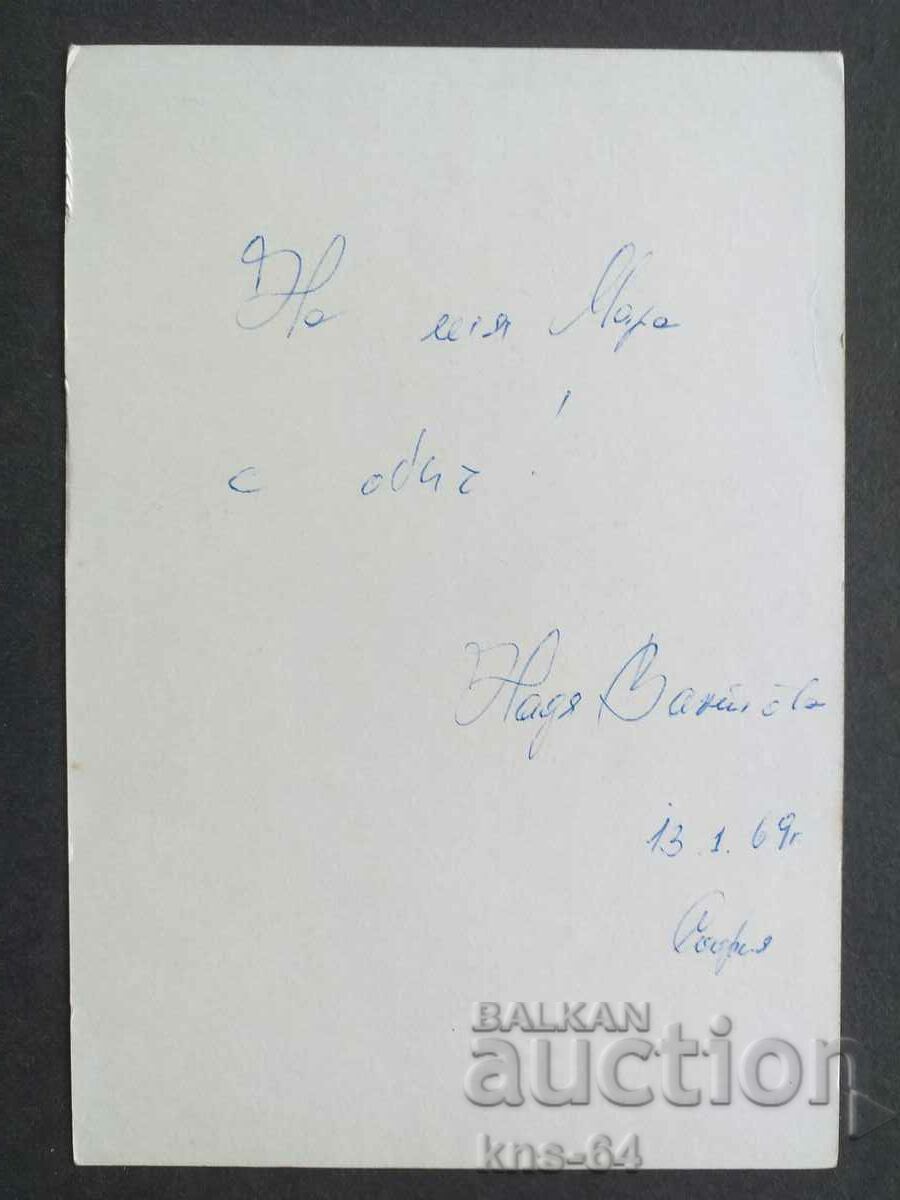 На леля Мара
с обич!
Надя
13.1.69г.
София
BALKAN
auction
kns-64